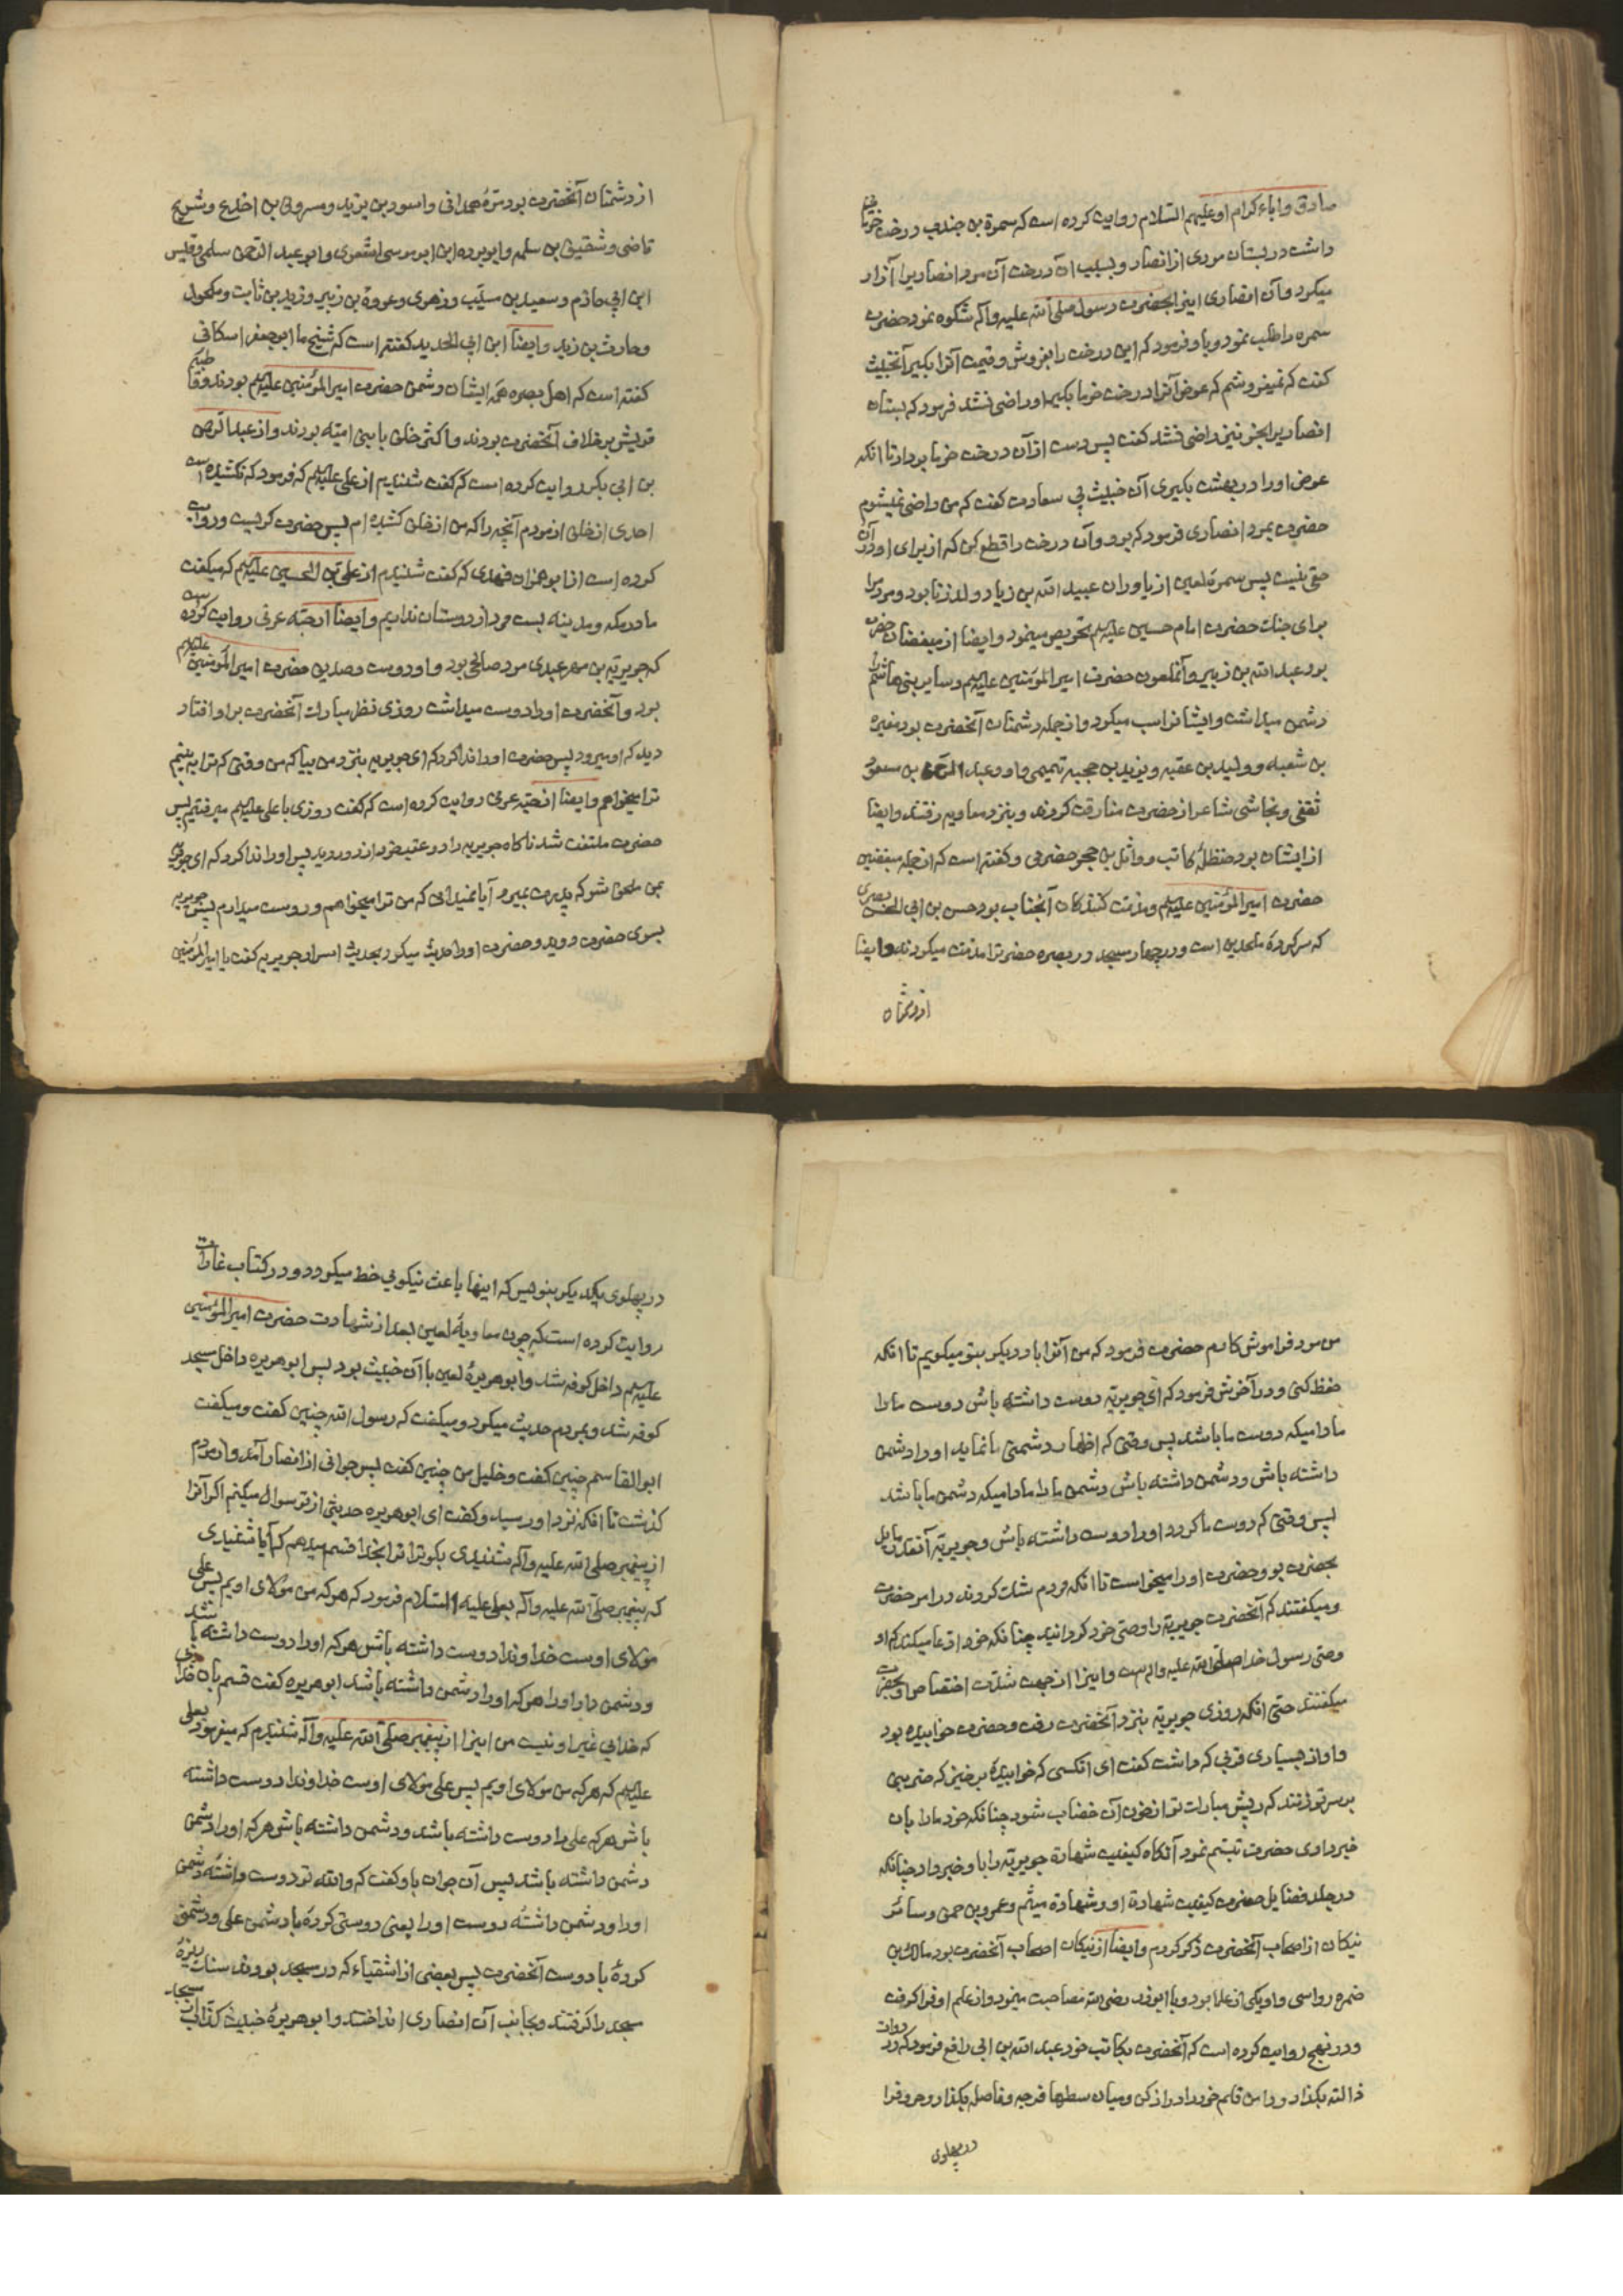 صادق واباء کرام او علیهم السّلام روایت کرده است که سمرة بن جندب درخت خرمائی
داشت در بستان مردی از انصار و بسبب آن درخت آن مرد انصاریرا آزار
میکرد وآن انصاری اینرا بحضرت رسول صلّی الله علیه وآله شکوه نمود حضرت
سمره را طلب نمود و باو فرمود که این درخت را بفروش و قیمت آنرا بکیر آنخبیث
کفت که نمیفروشم که عوض آنرا درخت خرما بکیر او راضی نشد فرمود که بستان
انصاریرا بخر نیز راضی نشد کفت پس دست از آن درخت خرما بردار تا انکه
عوض او را در بهشت بکیری آن خبیث بی سعادت کفت که من راضی نمیشوم
حضرت بمرد انصاری فرمود که برو وآن درخت را قطع کن که از برای او در آن
حقی نیست پس سمرۀ لعین از یاوران عبید الله بن زیاد ولد زنا بود و مردمرا
برای جنات حضرت امام حسین علیه السلم تحریص مینمود وایضا از مبغضان حضرت
بود عبد الله بن زبیر وآنملعون حضرت امیر المؤمنین علیه السلم وسایر بنی هاشم را
دشمن میداشت وایشانرا سب میکرد واز جمله دشمنان آنحضرت بود مغیرة
بن شعبه وولید بن عقبه ویزید بن حجیه تمیمی واو وعبد الرّحمن بن مسعود
ثقفی ونجاشی شاعر از حضرت مفارقت کردند وبنزد معاویه رفتند وایضا
از ایشان بود حنظلۀ کاتب و وائل بن حجر حضرمی وکفته است که از جمله مبغضین
حضرت امیر المؤمنین علیه السلم ومذمت کنندکان آنجناب بود حسن بن ابی الحسن بصری
که سرکردۀ ملحدین است ودر چهار مسجد در بصره حضرترا مذمت میکردند وایضا
از دشمنان
از دشمنان آنحضرت بود مرّۀ همدانی واسود بن یزید ومسروق بن اجدع وشریح
قاضی وشقیق بن سلمه وابو برده ابن ابو موسی اشعری وابو عبد الرّحمن سلمی وقیس
ابن ابی حازم وسعید بن مسیّب وزهری وعروة بن زبیر وزید بن ثابت ومکحول
وحارث بن زید وایضا ابن ابی الحدید کفته است که شیخ ما ابو جعفر اسکافی
کفته است که اهل بصره همه ایشان دشمن حضرت امیر المؤمنین علیه السلم بودند وقاطبه
قریش بر خلاف آنحضرت بودند واکثر خلق با بنی امیّه بودند واز عبد الرّحمن
بن ابی بکر روایت کرده است که کفت شنیدم از علی علیه السلم که فرمود که نکشیده است
احدی از خلق از مردم آنچه را که من از خلق کشیده ام پس حضرت کریست وروایت
کرده است از ابو هزان فهدی که کفت شنیدم از علی بن الحسین علیه السلم که میکفت
ما در مکه ومدینه بیست مرد از دوستان نداریم وایضا از حبّه عرنی روایت کرده است
که جویریة بن مسهر عبدی مرد صالحی بود واو دوست وصدیق حضرت امیر المؤمنین علیه السلم
بود وآنحضرت او را دوست میداشت روزی نظر مبارک آنحضرت بر او افتاد
دید که او میرود پس حضرت او را ندا کرد که ای جویریه بنزد من بیا که من وقتی که ترا می بینم
ترا میخواهم وایضا از حبّه عرنی روایت کرده است که کفت روزی با علی علیه السلم میرفتیم پس
حضرت ملتفت شد ناکاه جویریه را در عقب خود از دور دید پس او را ندا کرد که ای جویریه
بمن ملحق شو که پدرت بمیرد آیا نمیدانی که من ترا میخواهم ودوست میدارم پس جویریه
بسوی حضرت دوید وحضرت او را حدیث میکرد بحدیث اسرار جویریه کفت یا امیر المؤمنین
من مرد فراموش کارم حضرت فرمود که من آنرا بار دیکر بتو میکویم تا انکه
حفظ کنی ودر آخرش فرمود که ای جویریّه دوست داشته باش دوست ما را
مادامیکه دوست ما باشد پس وقتی که اظهار دشمنی ما نماید او را دشمن
داشته باش ودشمن داشته باش دشمن ما را مادامیکه دشمن ما باشد
پس وقتی که دوست ما کردد او را دوست داشته باش وجویریّه آنقدر مایل
بحضرت بود وحضرت او را میخواست تا انکه مردم شک کردند در امر حضرت
ومیکفتند که آنحضرت جویریّه را وصیّ خود کردانید چنانکه خود ادّعا میکند که او
وصیّ رسول خدا صلی الله علیه واله است واینرا از جهت شدّت اختصاص او بحضرت
میکفتند حتی انکه روزی جویریّه بنزد آنحضرت رفت وحضرت خوابیده بود
واو از بسیاری قربی که داشت کفت ای انکسی که خوابیدۀ برخیز که ضربتی
بر سر تو زنند که ریش مبارک تو از خون آن خضاب شود چنانکه خود ما را بان
خبر دادی حضرت تبسّم نمود آنکاه کیفیت شهادة جویریّه را باو خبر داد چنانکه
در جلد فضایل حضرت کیفیت شهادة او وشهادة میثم وعمرو بن حمق وسائر
نیکان از اصحاب آنحضرت ذکر کردم وایضا از نیکان اصحاب آنحضرت بود مالک بن
ضمره رواسی واو یکی از علما بود وبا ابوذر رضی الله مصاحبت مینمود واز علم او فرا کرفت
ودر نهج روایت کرده است که آنحضرت بکاتب خود عبد الله بن ابی رافع فرمود که در دوات
ذالته بکذار ودامن قلم خود را دراز کن ومیان سطرها فرجه وفاصله بکذار وحروف را
در پهلوی
در پهلوی یکدیکر بنویس که اینها باعث نیکوئی خط میکردد ودر کتاب غارات
روایت کرده است که چون معاویۀ لعین بعد از شهادت حضرت امیر المؤمنین
علیه السلم داخل کوفه شد وابو هریرۀ لعین با آن خبیث بود پس ابو هریره داخل مسجد
کوفه شد وبمردم حدیث میکرد ومیکفت که رسول الله چنین کفت ومیکفت
ابو القاسم چنین کفت وخلیل من چنین کفت پس جوانی از انصار آمد واز مردم
کذشت تا انکه نزد او رسید وکفت ای ابو هریره حدیثی از تو سوال میکنم اکر آنرا
از پیغمبر صلی الله علیه وآله شنیدی بکو ترا بخدا قسم میدهم که آیا شنیدی
که پیغمبر صلّی الله علیه وآله بعلی علیه السّلام فرمود که هر که من مولای اویم پس علی
مولای اوست خداوندا دوست داشته باش هر که او را دوست داشته باشد
ودشمن دار او را هر که او را دشمن داشته باشد ابو هریره کفت قسم بان خدائی
که خدائی غیر او نیست من اینرا از پیغمبر صلّی الله علیه وآله شنیدم که میفرمود بعلی
علیه السلم که هر که من مولای اویم پس علی مولای اوست خداوندا دوست داشته
باش هر که علی را دوست داشته باشد ودشمن داشته باش هر که او را دشمن
دشمن داشته باشد پس آن جوان باو کفت که والله تو دوست داشتۀ دشمن
او را ودشمن داشتۀ دوست او را یعنی دوستی کردۀ با دشمن علی ودشمنی
کردۀ با دوست آنحضرت پس بعضی از اشقیاء که در مسجد بودند سنک ریزۀ
مسجد را کرفتند وبجانب آن انصاری انداختند وابو هریرۀ خبیث کذّاب از مسجد